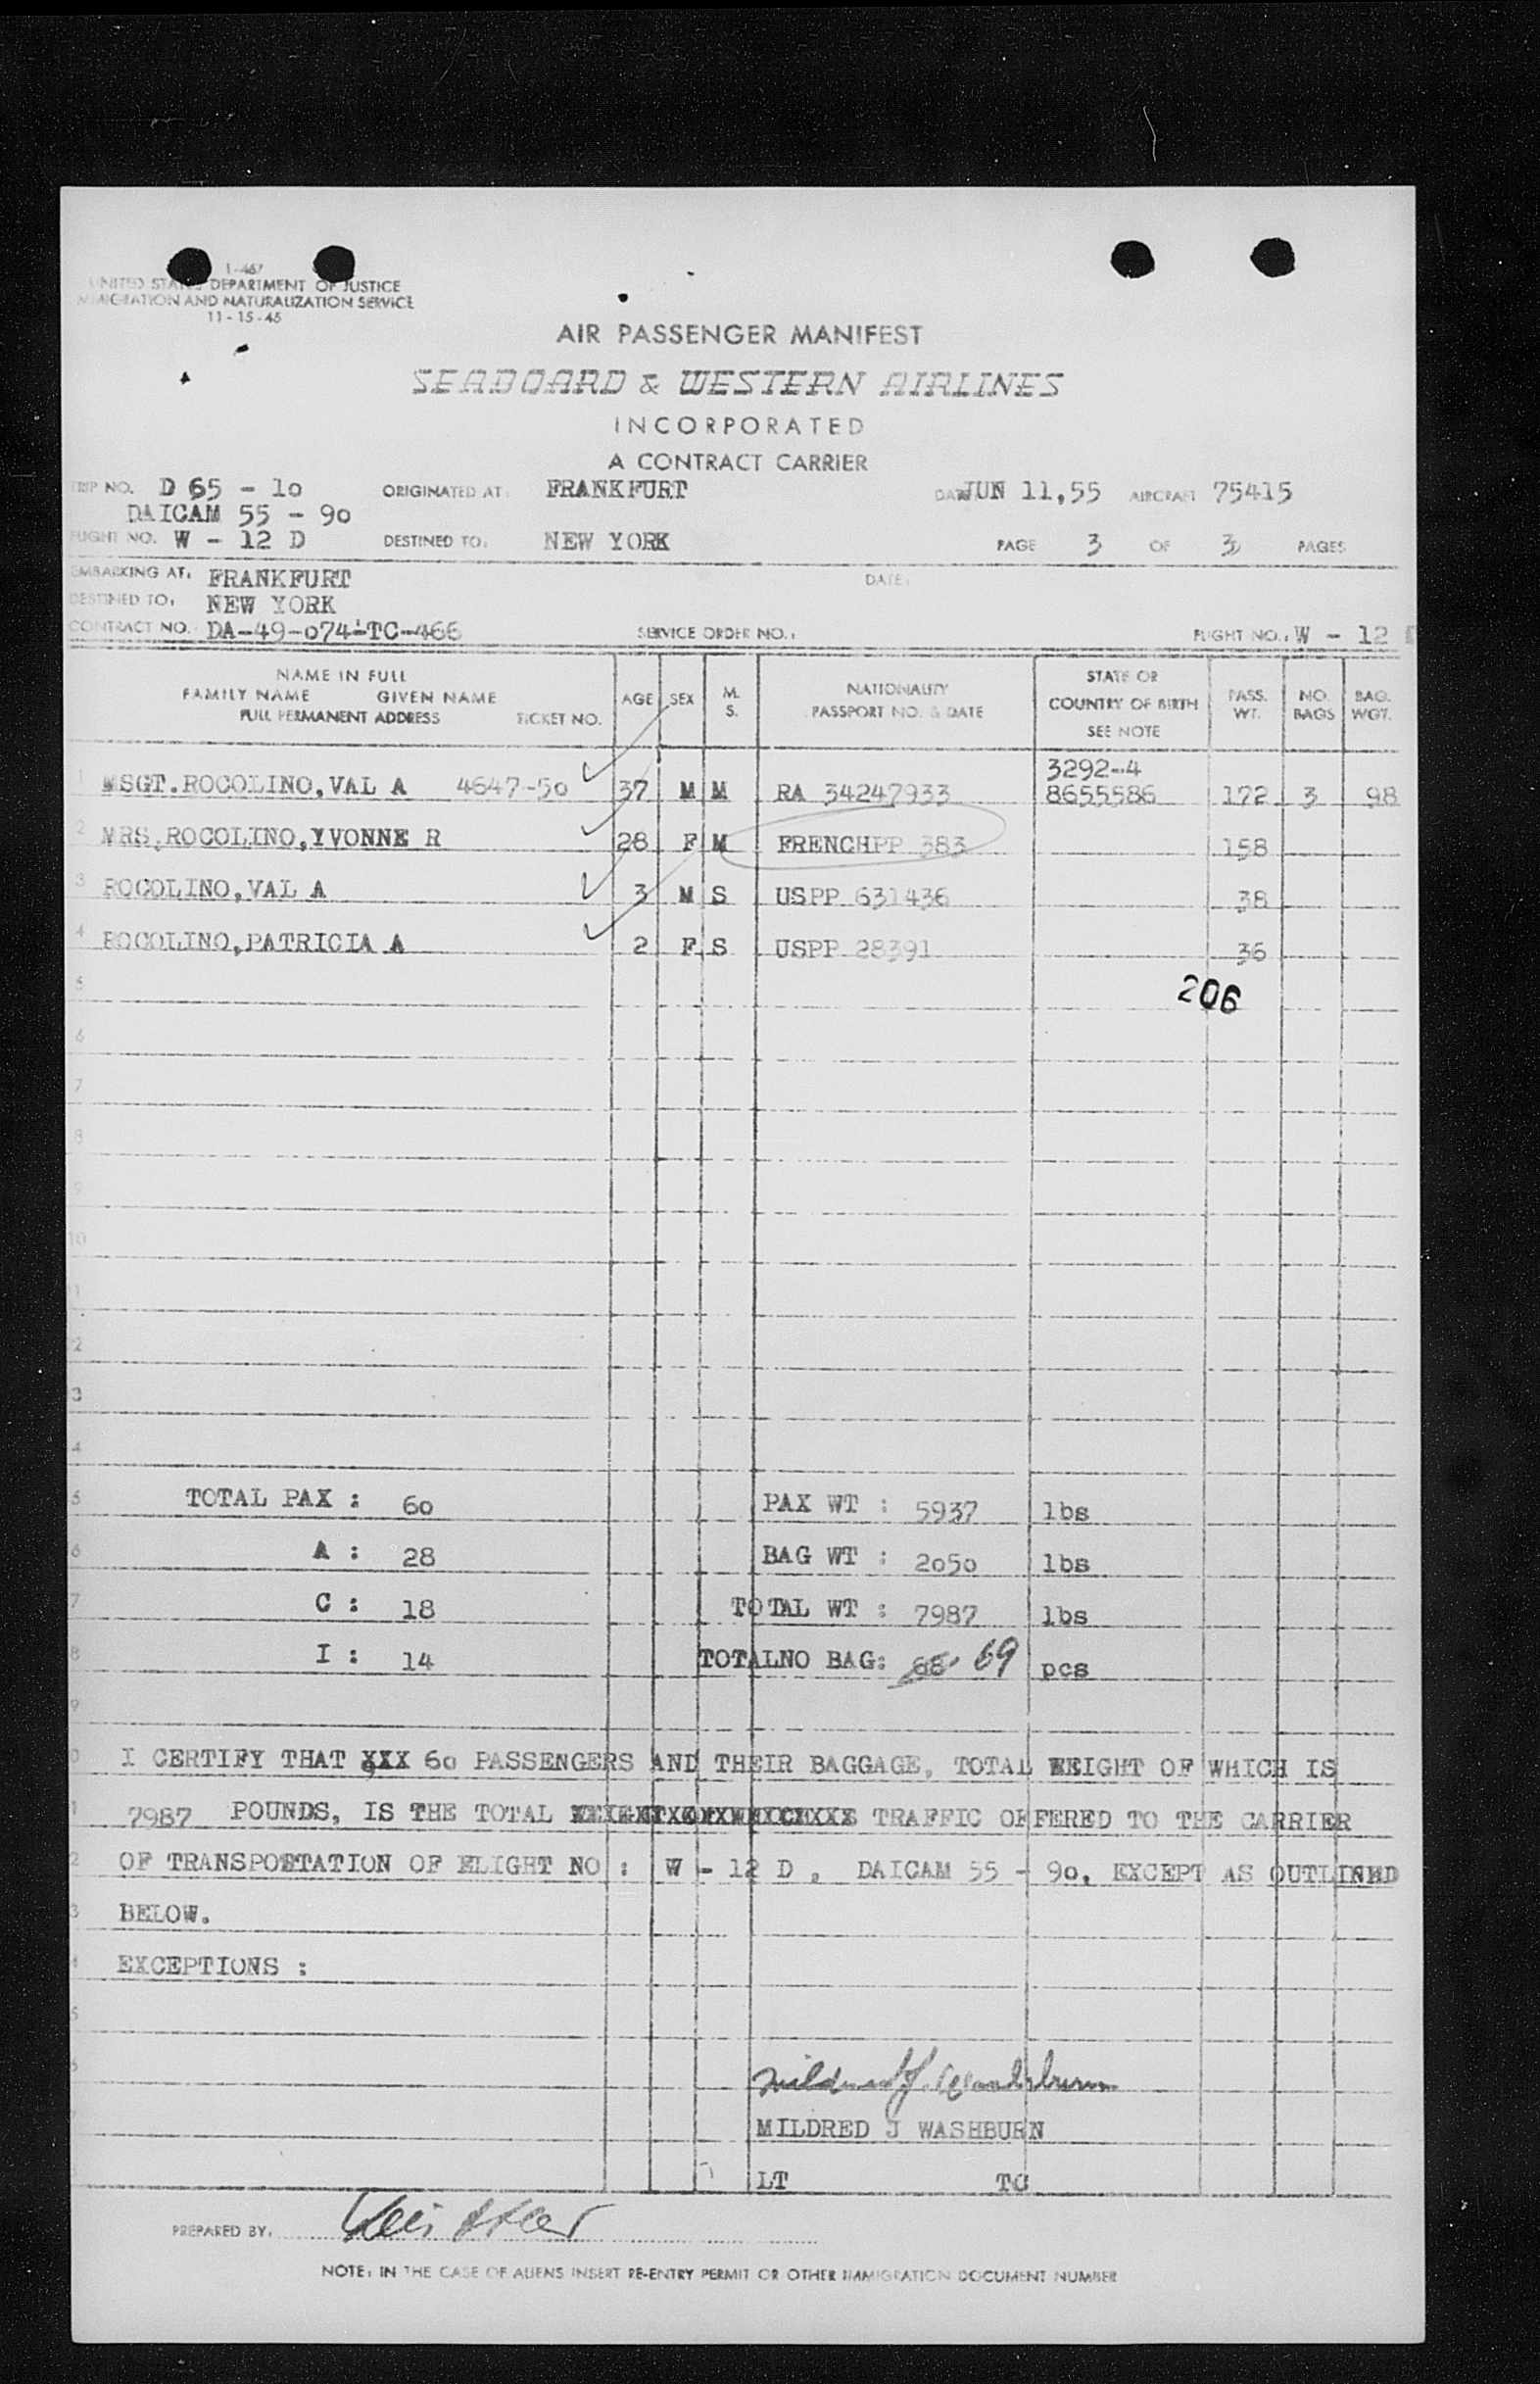 I-467
UNITED STATES DEPARTMENT OF JUSTICE
IMMIGRATION AND NATURALIZATION SERVICE
11-15-45
AIR PASSENGER MANIFEST
SEABOARD & WESTERN AIRLINES
INCORPORATED
A CONTRACT CARRIER
TRIP NO. D 65 - 10 ORIGINATED AT: FRANKFURT DATE JUN 11,55 AIRCRAFT 75415
DAICAM 55 - 90
FLIGHT NO. W - 12 D DESTINED TO: NEW YORK PAGE 3 OF 3 PAGES
EMBARKING AT: FRANKFURT DATE:
DESTINED TO: NEW YORK
CONTRACT NO. DA-49-074-TC-466 SERVICE ORDER NO.: FLIGHT NO.: W - 12
NAME IN FULL
FAMILY NAME GIVEN NAME
FULL PERMANENT ADDRESS TICKET NO.
AGE SEX M. S.
NATIONALITY
PASSPORT NO. & DATE
STATE OR
COUNTRY OF BIRTH
SEE NOTE
PASS. WT.
NO. BAGS
BAG. WGT.
3292-4
1 MSGT.ROCOLINO,VAL A 4647-50 37 M M RA 34247933 8655586 172 3 98
2 MRS.ROCOLINO,YVONNE R 28 F M FRENCHPP 383 158
3 ROCOLINO,VAL A 3 M S USPP 631436 38
4 ROCOLINO,PATRICIA A 2 F S USPP 28391 36
5 206
6
7
8
9
10
1
2
3
4
5 TOTAL PAX : 60 PAX WT : 5937 lbs
6 A : 28 BAG WT : 2050 lbs
7 C : 18 TOTAL WT : 7987 lbs
8 I : 14 TOTALNO BAG: 68 69 pcs
9
0 I CERTIFY THAT XXX 60 PASSENGERS AND THEIR BAGGAGE, TOTAL WEIGHT OF WHICH IS
1 7987 POUNDS, IS THE TOTAL TRAFFIC OFFERED TO THE CARRIER
2 OF TRANSPORTATION OF FLIGHT NO : W - 12 D , DAICAM 55 - 90, EXCEPT AS OUTLINED
3 BELOW.
4 EXCEPTIONS :
5
6 Mildred J. Washburn
MILDRED J WASHBURN
LT TC
PREPARED BY:
NOTE: IN THE CASE OF ALIENS INSERT RE-ENTRY PERMIT OR OTHER IMMIGRATION DOCUMENT NUMBER